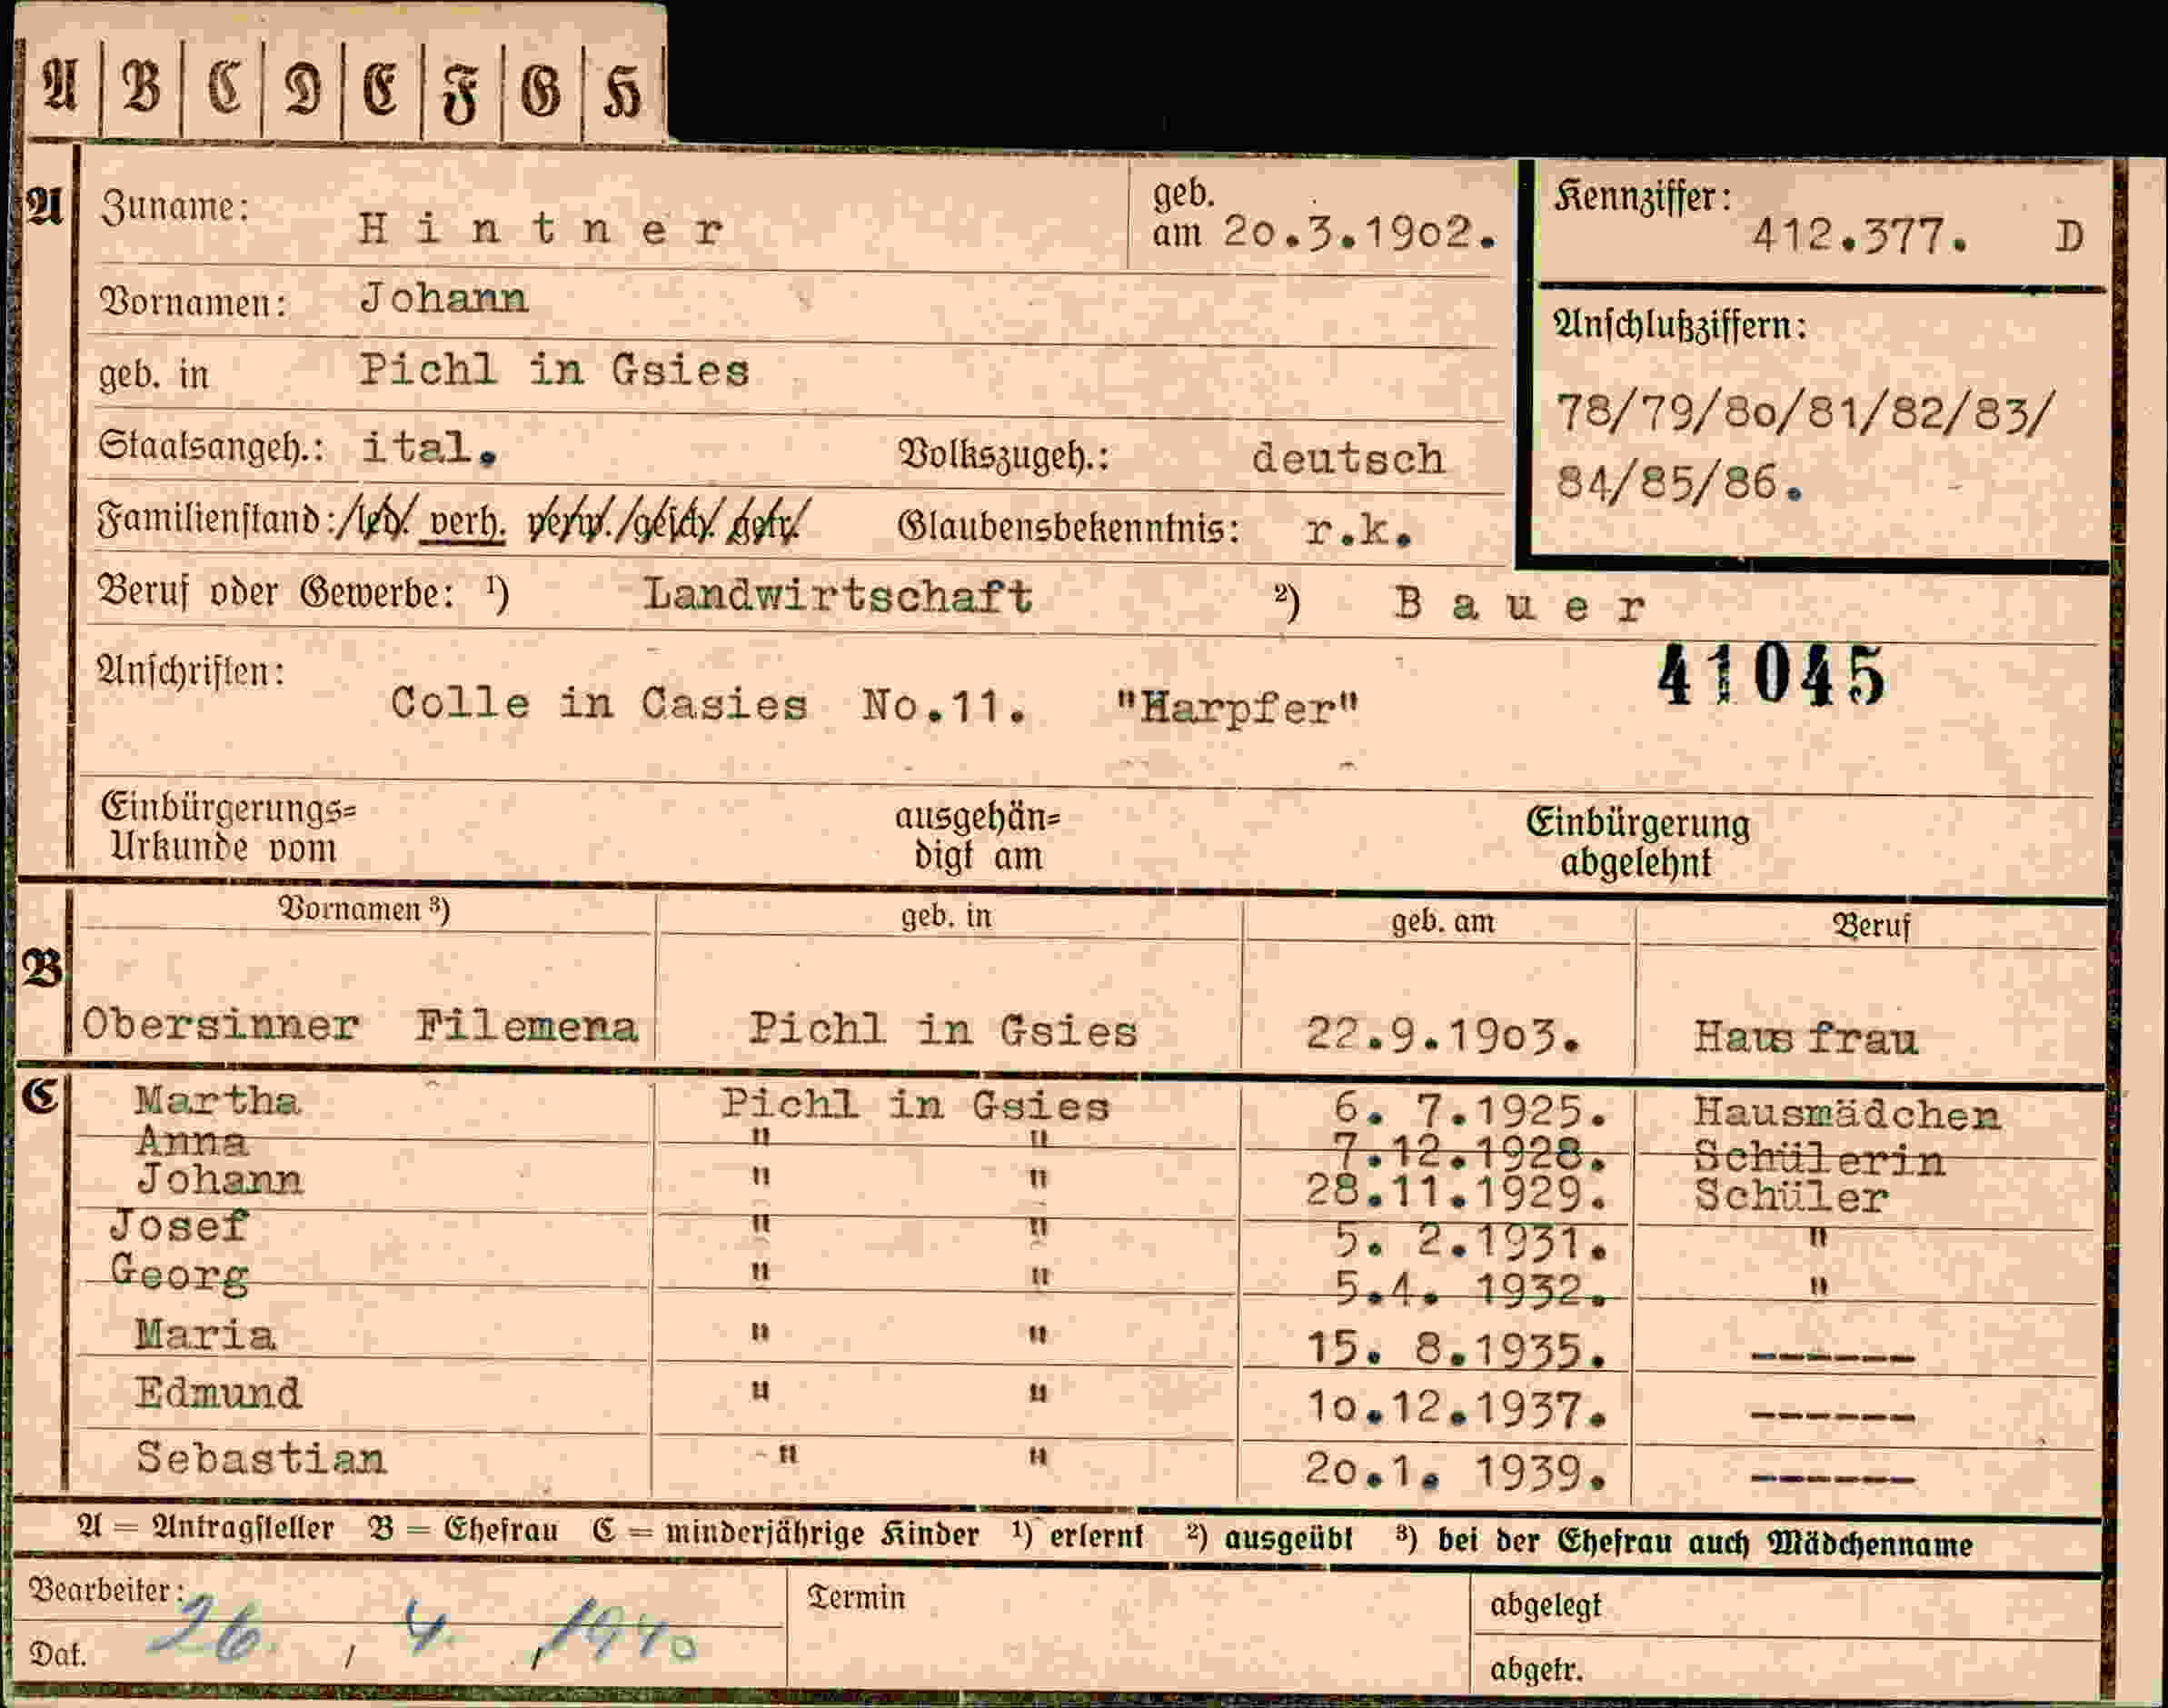 A B C D E F G H
A Zuname: Hintner geb. am 20.3.1902. Kennziffer: 412.377. D
Vornamen: Johann
Anschlußziffern:
geb. in Pichl in Gsies
78/79/80/81/82/83/
Staatsangeh.: ital. Volkszugeh.: deutsch
84/85/86.
Familienstand: led. verh. verw. gesch. getr. Glaubensbekenntnis: r.k.
Beruf oder Gewerbe: ¹) Landwirtschaft ²) Bauer
41045
Anschriften:
Colle in Casies No.11. "Harpfer"
Einbürgerungs=
Urkunde vom
ausgehän=
digt am
Einbürgerung
abgelehnt
Vornamen ³) geb. in geb. am Beruf
B
Obersinner Filemena Pichl in Gsies 22.9.1903. Hausfrau
C Martha Pichl in Gsies 6. 7.1925. Hausmädchen
Anna " " 7.12.1928. Schülerin
Johann " " 28.11.1929. Schüler
Josef " " 5. 2.1931. "
Georg " " 5.4. 1932. "
Maria " " 15. 8.1935. ------
Edmund " " 10.12.1937. ------
Sebastian " " 20.1. 1939. ------
A = Antragsteller B = Ehefrau C = minderjährige Kinder ¹) erlernt ²) ausgeübt ³) bei der Ehefrau auch Mädchenname
Bearbeiter:
Termin
abgelegt
Dat. 26. / 4. / 1940
abgetr.